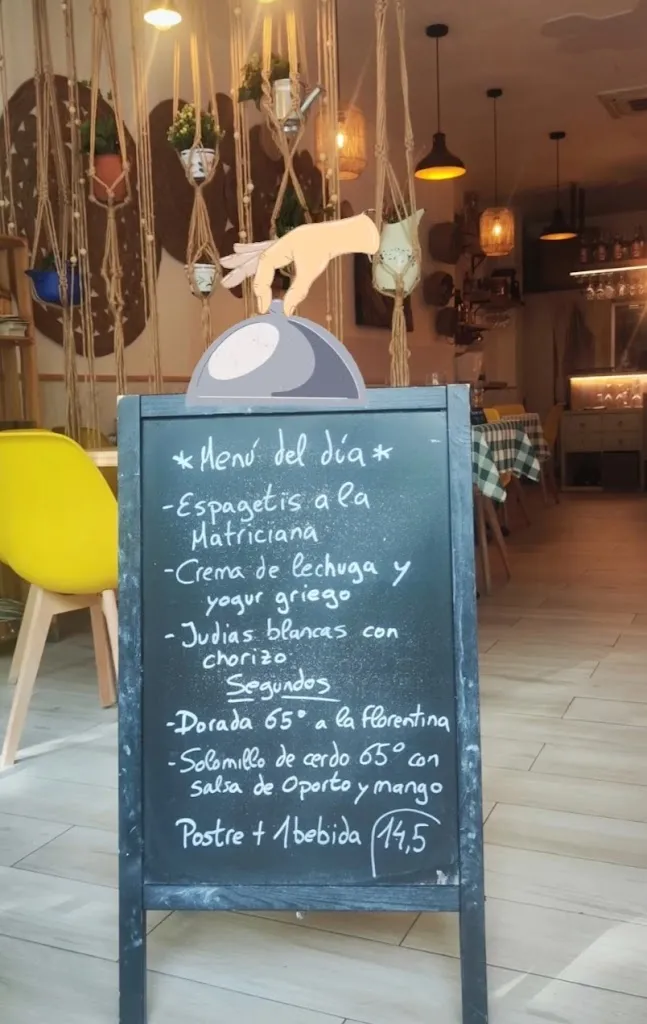 * Menú del día *
- Espagetis a la
Matriciana
- Crema de lechuga y
yogur griego
- Judias blancas con
chorizo
Segundos
- Dorada 65º a la florentina
- Solomillo de cerdo 65º con
salsa de Oporto y mango
Postre + 1 bebida 14,5